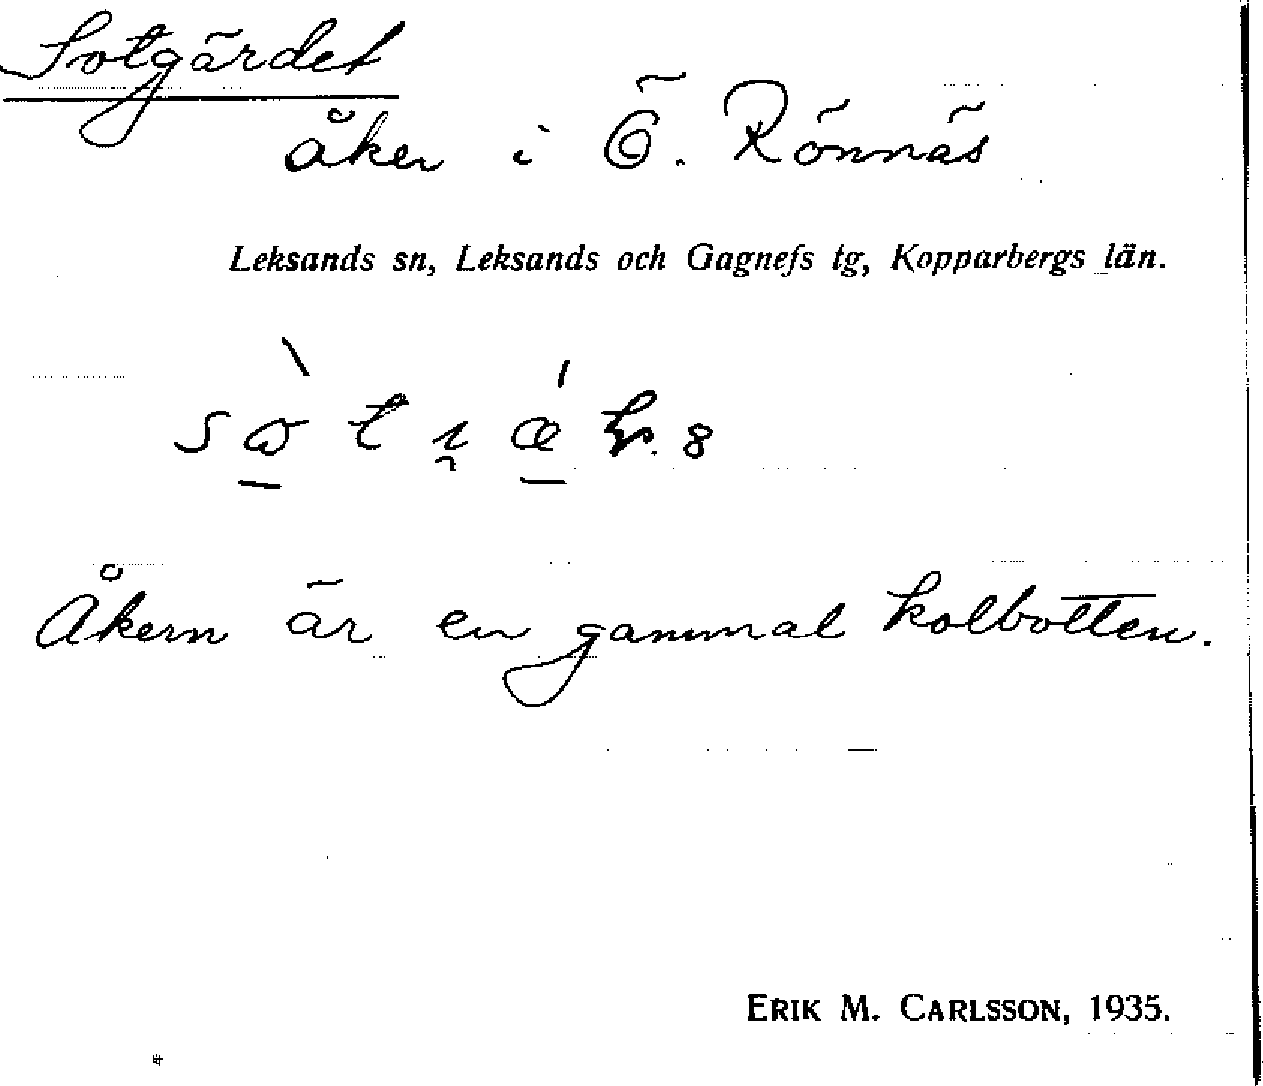 Sotgärdet
åker i Ö. Rönnäs
Leksands sn, Leksands och Gagnefs tg, Kopparbergs län.
Åkern är en gammal kolbotten.
ERIK M. CARLSSON, 1935.